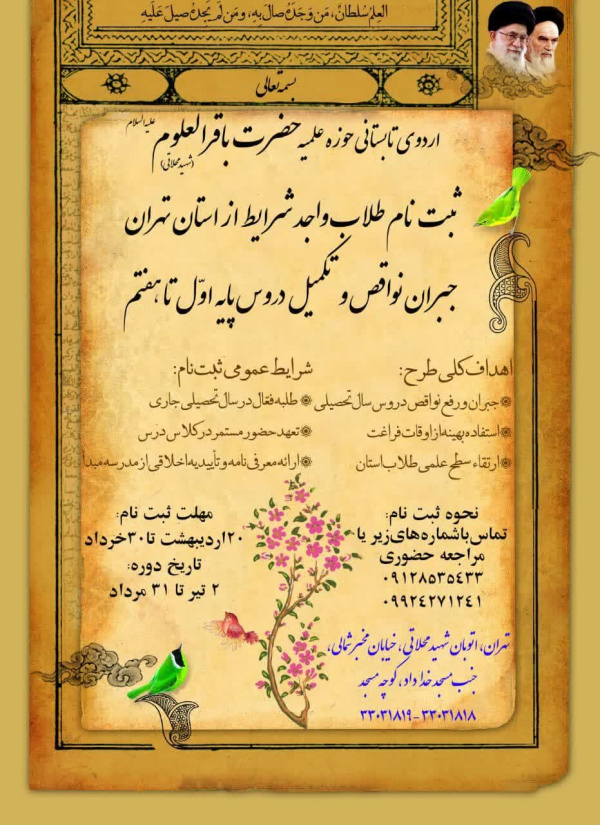 العِلمُ سُلطانٌ، مَن وَجَدَهُ صالَ بِهِ، ومَن لَم يَجِدهُ صيلَ عَلَيهِ
بسمه تعالی
اردوی تابستانی حوزه علمیه حضرت باقرالعلوم علیه‌السلام
(شهید محلاتی)
ثبت نام طلاب واجد شرایط از استان تهران
جبران نواقص و تکمیل دروس پایه اوّل تا هفتم
اهداف کلی طرح:
جبران و رفع نواقص دروس سال تحصیلی
استفاده بهینه از اوقات فراغت
ارتقاء سطح علمی طلاب استان
شرایط عمومی ثبت نام:
طلبه فعّال در سال تحصیلی جاری
تعهد حضور مستمر در کلاس درس
ارائه معرفی نامه و تأییدیه اخلاقی از مدرسه مبدا
نحوه ثبت نام:
تماس با شماره‌های زیر یا
مراجعه حضوری
۰۹۱۲۸۵۳۵۴۳۳
۰۹۹۲۴۲۷۱۲۴۱
مهلت ثبت نام:
۲۰ اردیبهشت تا ۳۰ خرداد
تاریخ دوره:
۲ تیر تا ۳۱ مرداد
تهران، اتوبان شهید محلاتی، خیابان مخبر شمالی،
جنب مسجد خداداد، کوچه مسجد
۳۳۰۳۱۸۱۹-۳۳۰۳۱۸۱۸